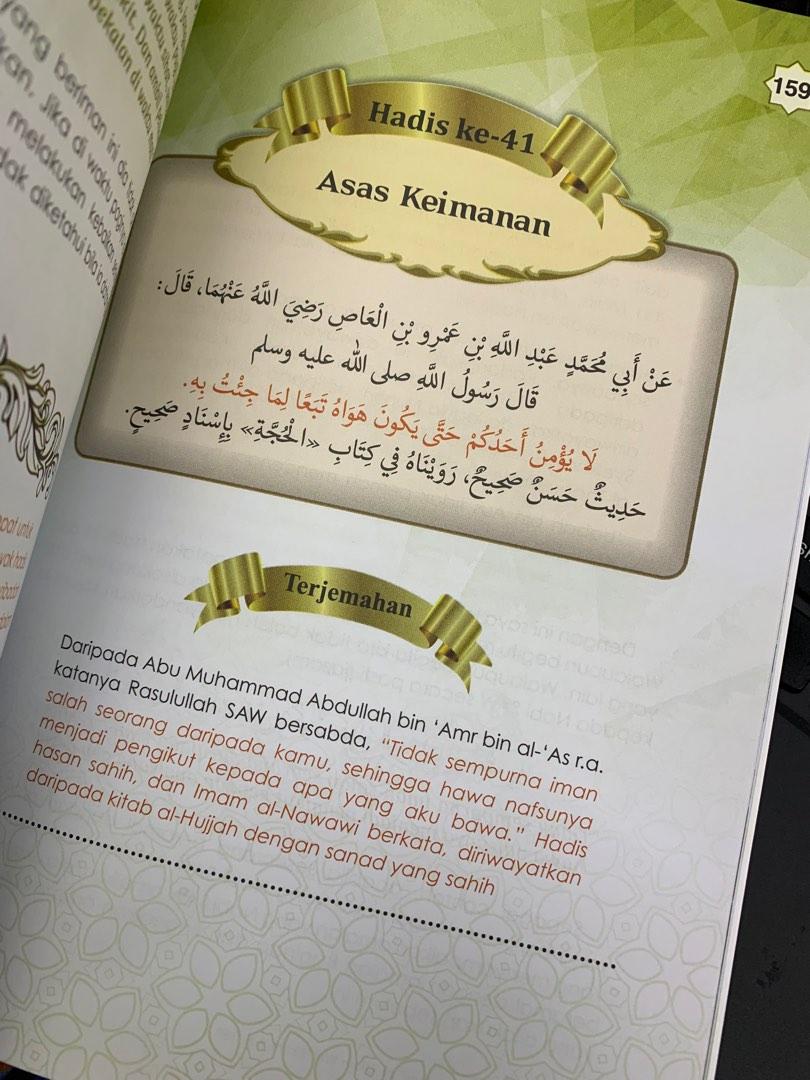 yang beriman ini
Jika di waktu
melakukan
diketahui bila
159
Hadis ke-41
Asas Keimanan
عَنْ أَبِي مُحَمَّدٍ عَبْدِ اللَّهِ بْنِ عَمْرِو بْنِ الْعَاصِ رَضِيَ اللَّهُ عَنْهُمَا، قَالَ:
قَالَ رَسُولُ اللَّهِ صلى الله عليه وسلم
لَا يُؤْمِنُ أَحَدُكُمْ حَتَّى يَكُونَ هَوَاهُ تَبَعًا لِمَا جِئْتُ بِهِ.
حَدِيثٌ حَسَنٌ صَحِيحٌ، رَوَيْنَاهُ فِي كِتَابِ «الْحُجَّةِ» بِإِسْنَادٍ صَحِيحٍ.
Terjemahan
Daripada Abu Muhammad Abdullah bin ‘Amr bin al-‘As r.a.
katanya Rasulullah SAW bersabda, “Tidak sempurna iman
salah seorang daripada kamu, sehingga hawa nafsunya
menjadi pengikut kepada apa yang aku bawa.” Hadis
hasan sahih, dan Imam al-Nawawi berkata, diriwayatkan
daripada kitab al-Hujjah dengan sanad yang sahih